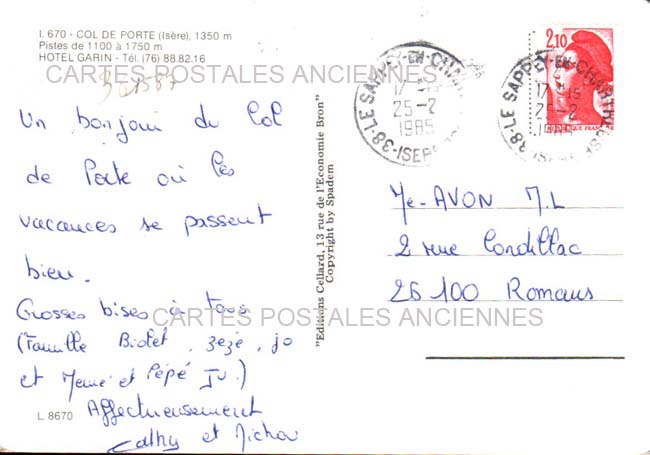 I. 670 - COL DE PORTE (Isère), 1350 m
Pistes de 1100 à 1750 m
HOTEL GARIN - Tél. (76) 88.82.16
CARTES POSTALES ANCIENNES
Un bonjour du Col
de Porte où les
vacances se passent
bien.
Grosses bises à tous
CARTES POSTALES ANCIENNES
(Famille Biolet, zézé, jo
et Mémé et Pépé Ju.)
Affectueusement
Cathy et Michou
L 8670
"Editions Cellard, 13 rue de l'Economie Bron"
Copyright by Spadem
38-LE SAPPEY-EN-CHAR
17
25-2
1985
ISERE
2,10
38-LE SAPPEY-EN-CHARTREUSE
17
25-2
1985
Me-AVON M.L
2 rue Condillac
26 100 Romans